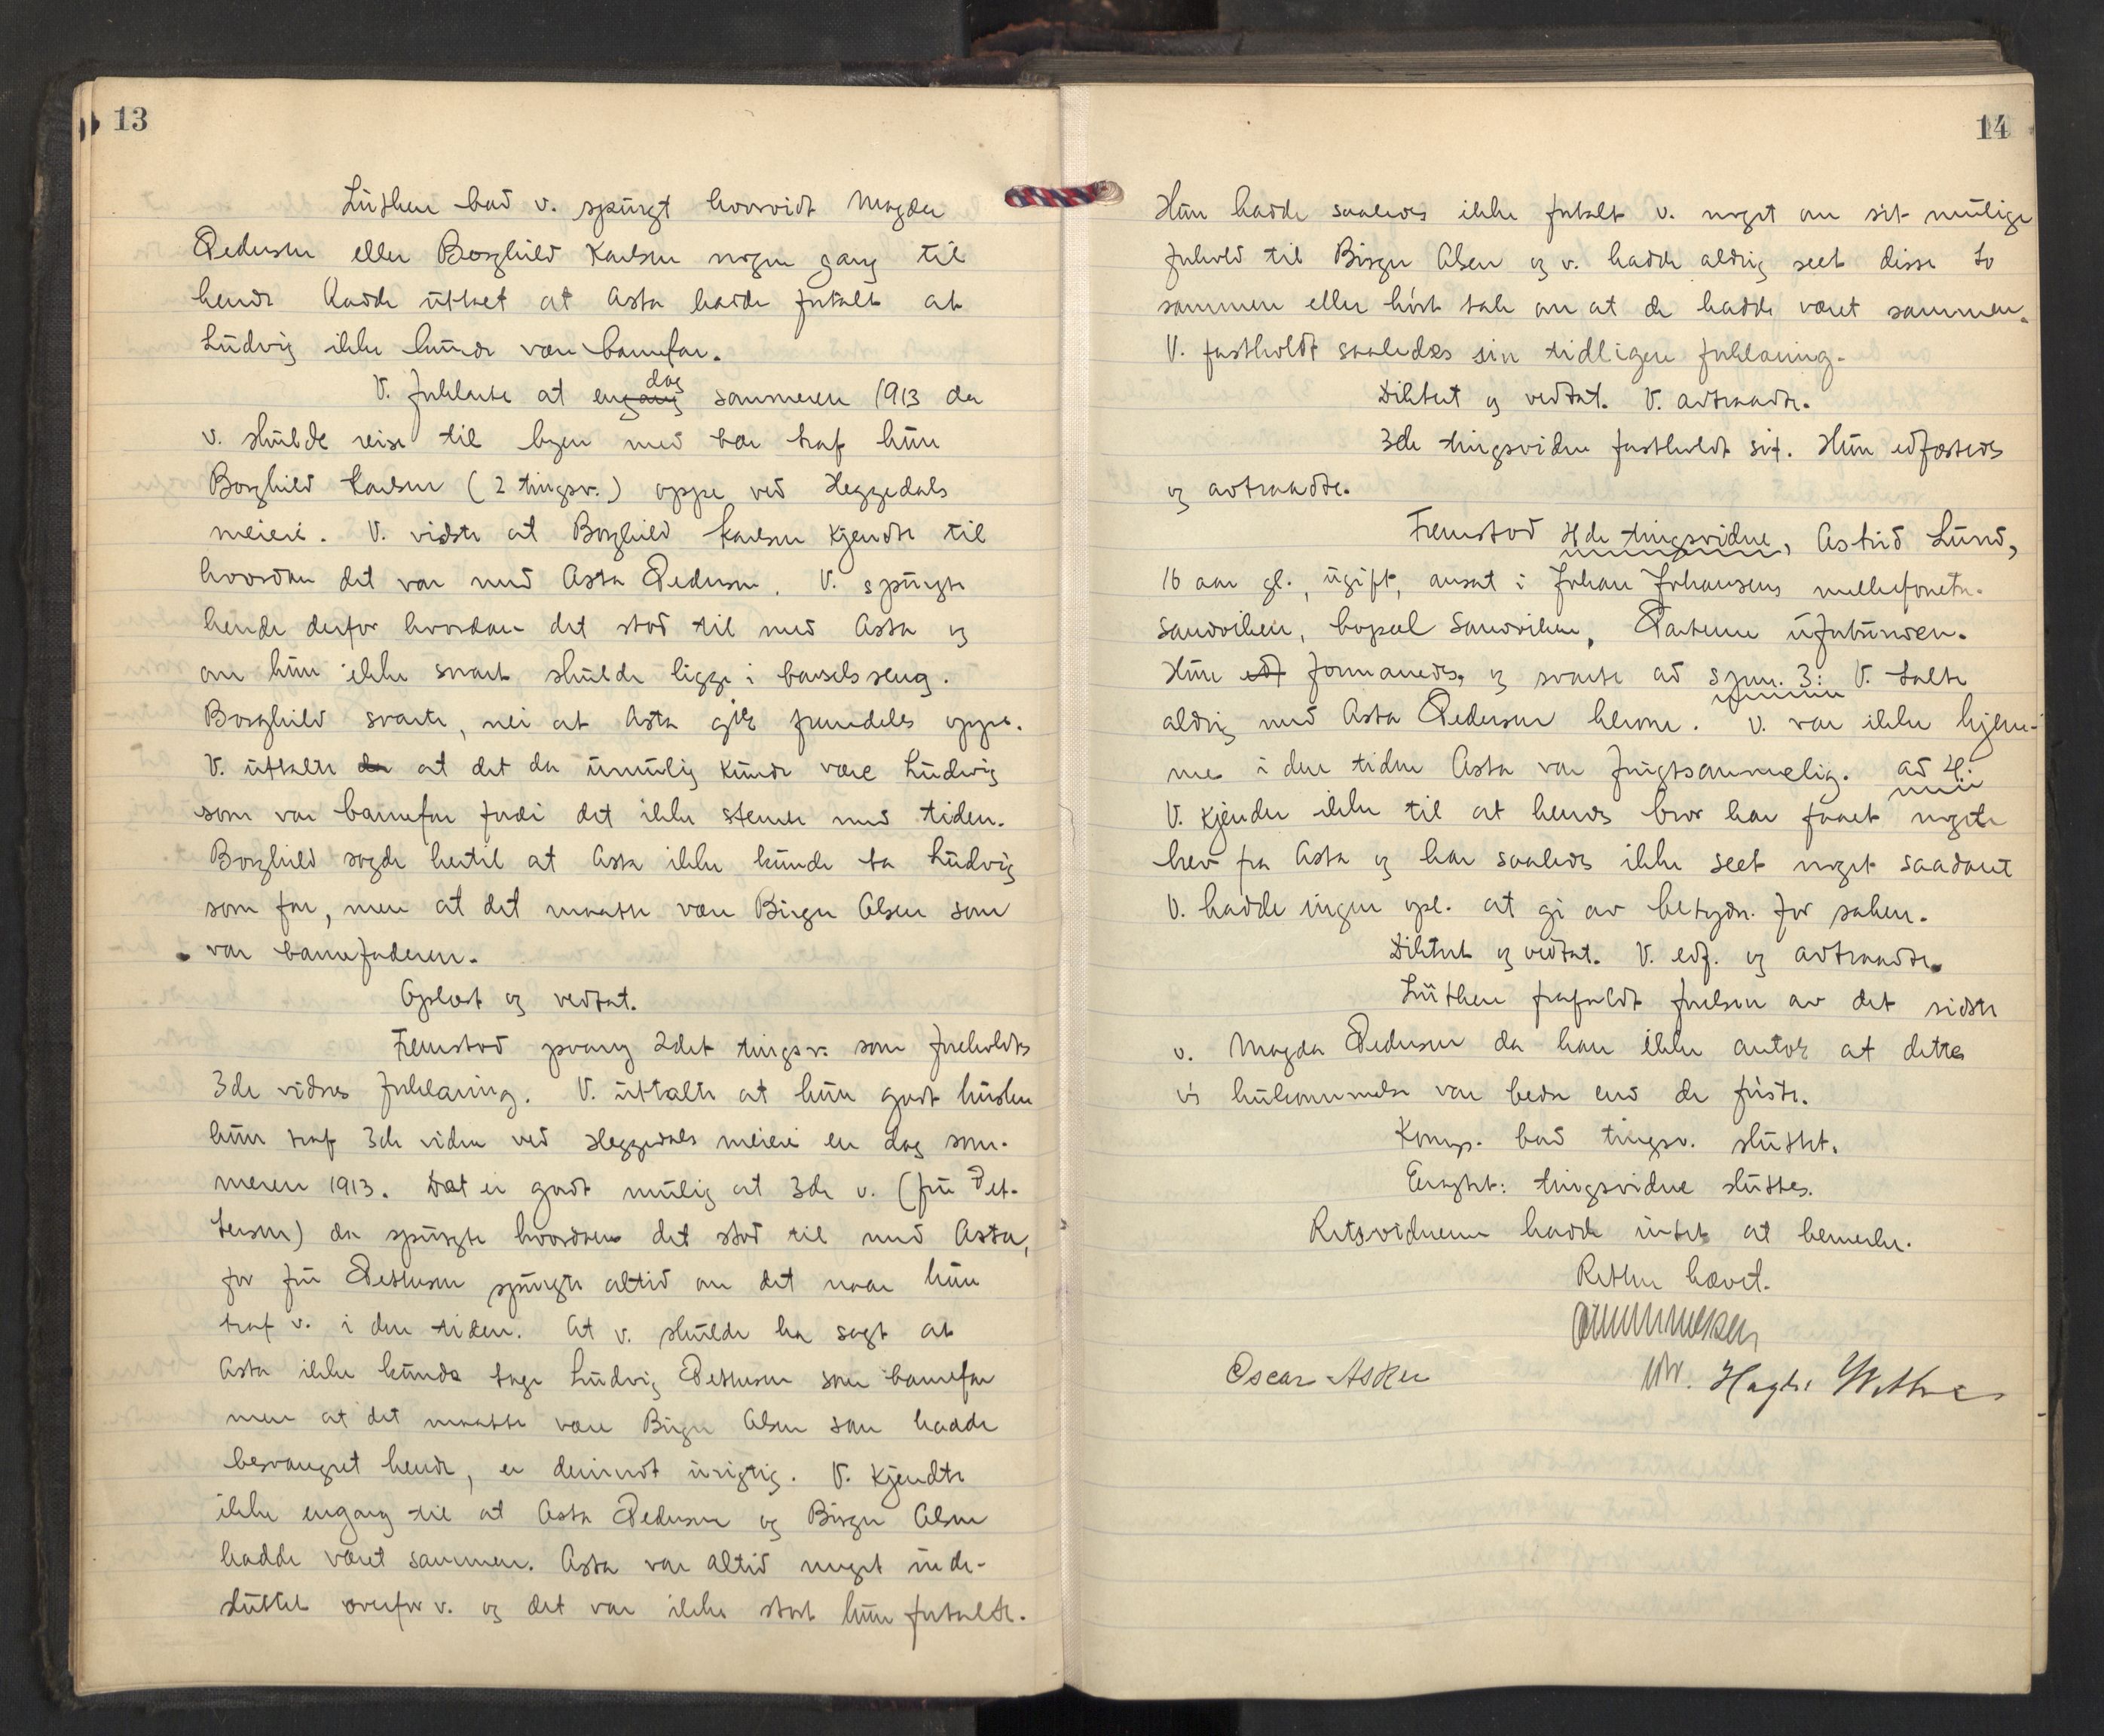 13
Lüthen bad v. spurgt hvorvidt Magda
Pedersen eller Borghild Karlsen nogen gang til
hende hadde uttalt at Asta hadde fortalt at
Ludvig ikke kunde være barnefar.
V. forklarte at en gang dag sommeren 1913 da
v. skulde reise til byen med bær traf hun
Borghild Karlsen (2 tingsv.) oppe ved Heggedals
meieri. V. vidste at Borghild Karlsen kjendte til
hvordan det var med Asta Pedersen. V. spurgte
hende derfor hvordan det stod til med Asta og
om hun ikke snart skulde ligge i barselseng.
Borghild svarte, nei at Asta gik fremdeles oppe.
V. uttalte da at det da umulig kunde være Ludvig
som var barnefar fordi det ikke stemte med tiden.
Borghild sagde hertil at Asta ikke kunde ta Ludvig
som far, men at det maatte være Birger Olsen som
var barnefaderen.
Oplæst og vedtat.
Fremstod paany 2det tingsv. som foreholdtes
3de vidnes forklaring. V. uttalte at hun godt husker
hun traf 3de vidne ved Heggedals meieri en dag som-
meren 1913. Det er godt mulig at 3de v. (fru Pet-
tersen) da spurgte hvordan det stod til med Asta,
for fru Pettersen spurgte altid om det naar hun
traf v. i den tiden. At v. skulde ha sagt at
Asta ikke kunde tage Ludvig Pettersen som barnefar
men at det maatte være Birger Olsen som hadde
besvangret hende, er derimot urigtig. V. kjendte
ikke engang til at Asta Pedersen og Birger Olsen
hadde været sammen. Asta var altid meget inde-
sluttet overfor v. og det var ikke stort hun fortalte.
14
Hun hadde saaledes ikke fortalt v. noget om sit mulige
forhold til Birger Olsen og v. hadde aldrig seet disse to
sammen eller hørt tale om at de hadde været sammen.
V. fastholdt saaledes sin tidligere forklaring.
Diktert og vedtat. V. avtraadte.
3de tingsvidne fastholdt sit. Hun edfæstedes
og avtraadte.
Fremstod 4de tingsvidne, Astrid Lund,
16 aar gl., ugift, ansat i Johan Johansens
Sandviken, bopæl Sandviken, Parterne uforbunden.
Hun edf formanedes, og svarte ad spm. 3: V. talte
aldrig med Asta Pedersen herom. V. var ikke hjem-
me i den tiden Asta var frugtsommelig. ad 4:
V. kjender ikke til at hendes bror har faaet noget
brev fra Asta og har saaledes ikke seet noget saadant
V. hadde ingen opl. at gi av betydn. for saken.
Diktert og vedtat. V. edf. og avtraadte.
Lüthen frafaldt førelsen av det sidste
v. Magda Pedersen da han ikke antok at dette
v's hukommelse var bedre end de første.
Komp. bad tingsv. sluttet.
Eragtet: tingsvidne sluttes.
Retsvidnerne hadde intet at bemerke.
Retten hævet.
Oscar Asker